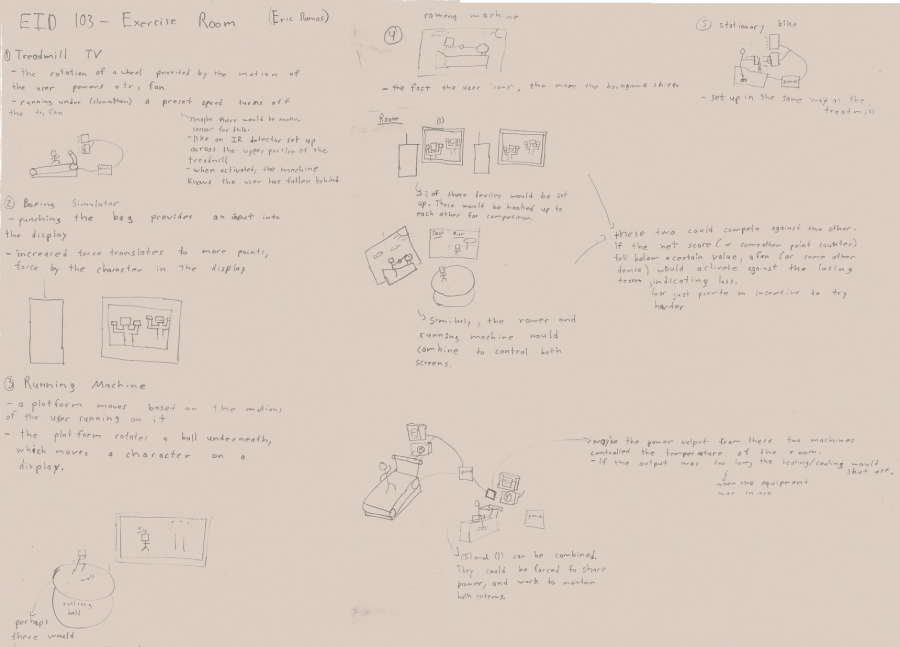 EID 103 - Exercise Room (Eric Ramos)
① Treadmill TV
- the rotation of a wheel provided by the motion of
the user powers a tv, fan
- running under (slower than) a preset speed turns off
the tv, fan
maybe there would be another
sensor for this.
- like an IR detector set up
across the upper portion of the
treadmill
- when activated, the machine
knows the user has fallen behind
② Boxing Simulator
- punching the bag provides an input into
the display
- increased force translates to more points,
force by the character in the display
③ Running Machine
- a platform moves based on the motions
of the user running on it
- the platform rotates a ball underneath,
which moves a character on a
display.
rolling
ball
perhaps
there would
④ rowing machine
- the fast the user "rows", the more the background shifts
Room
2 of these devices would be set
up. These would be hooked up to
each other for competition.
Similarly, the rower and
running machine would
combine to control both
screens.
these two could compete against the other.
if the net score (or some other point counter)
fell below a certain value, a fan (or some other
device) would activate against the losing
team, indicating loss.
or just provide an incentive to try
harder
⑤ stationary bike
- set up in the same way as the
treadmill
maybe the power output from these two machines
controlled the temperature of the room.
- If the output was too low, the heating/cooling would
shut off,
when the equipment
was in use
(5) and (1) can be combined.
They could be forced to share
power, and work to maintain
both systems.